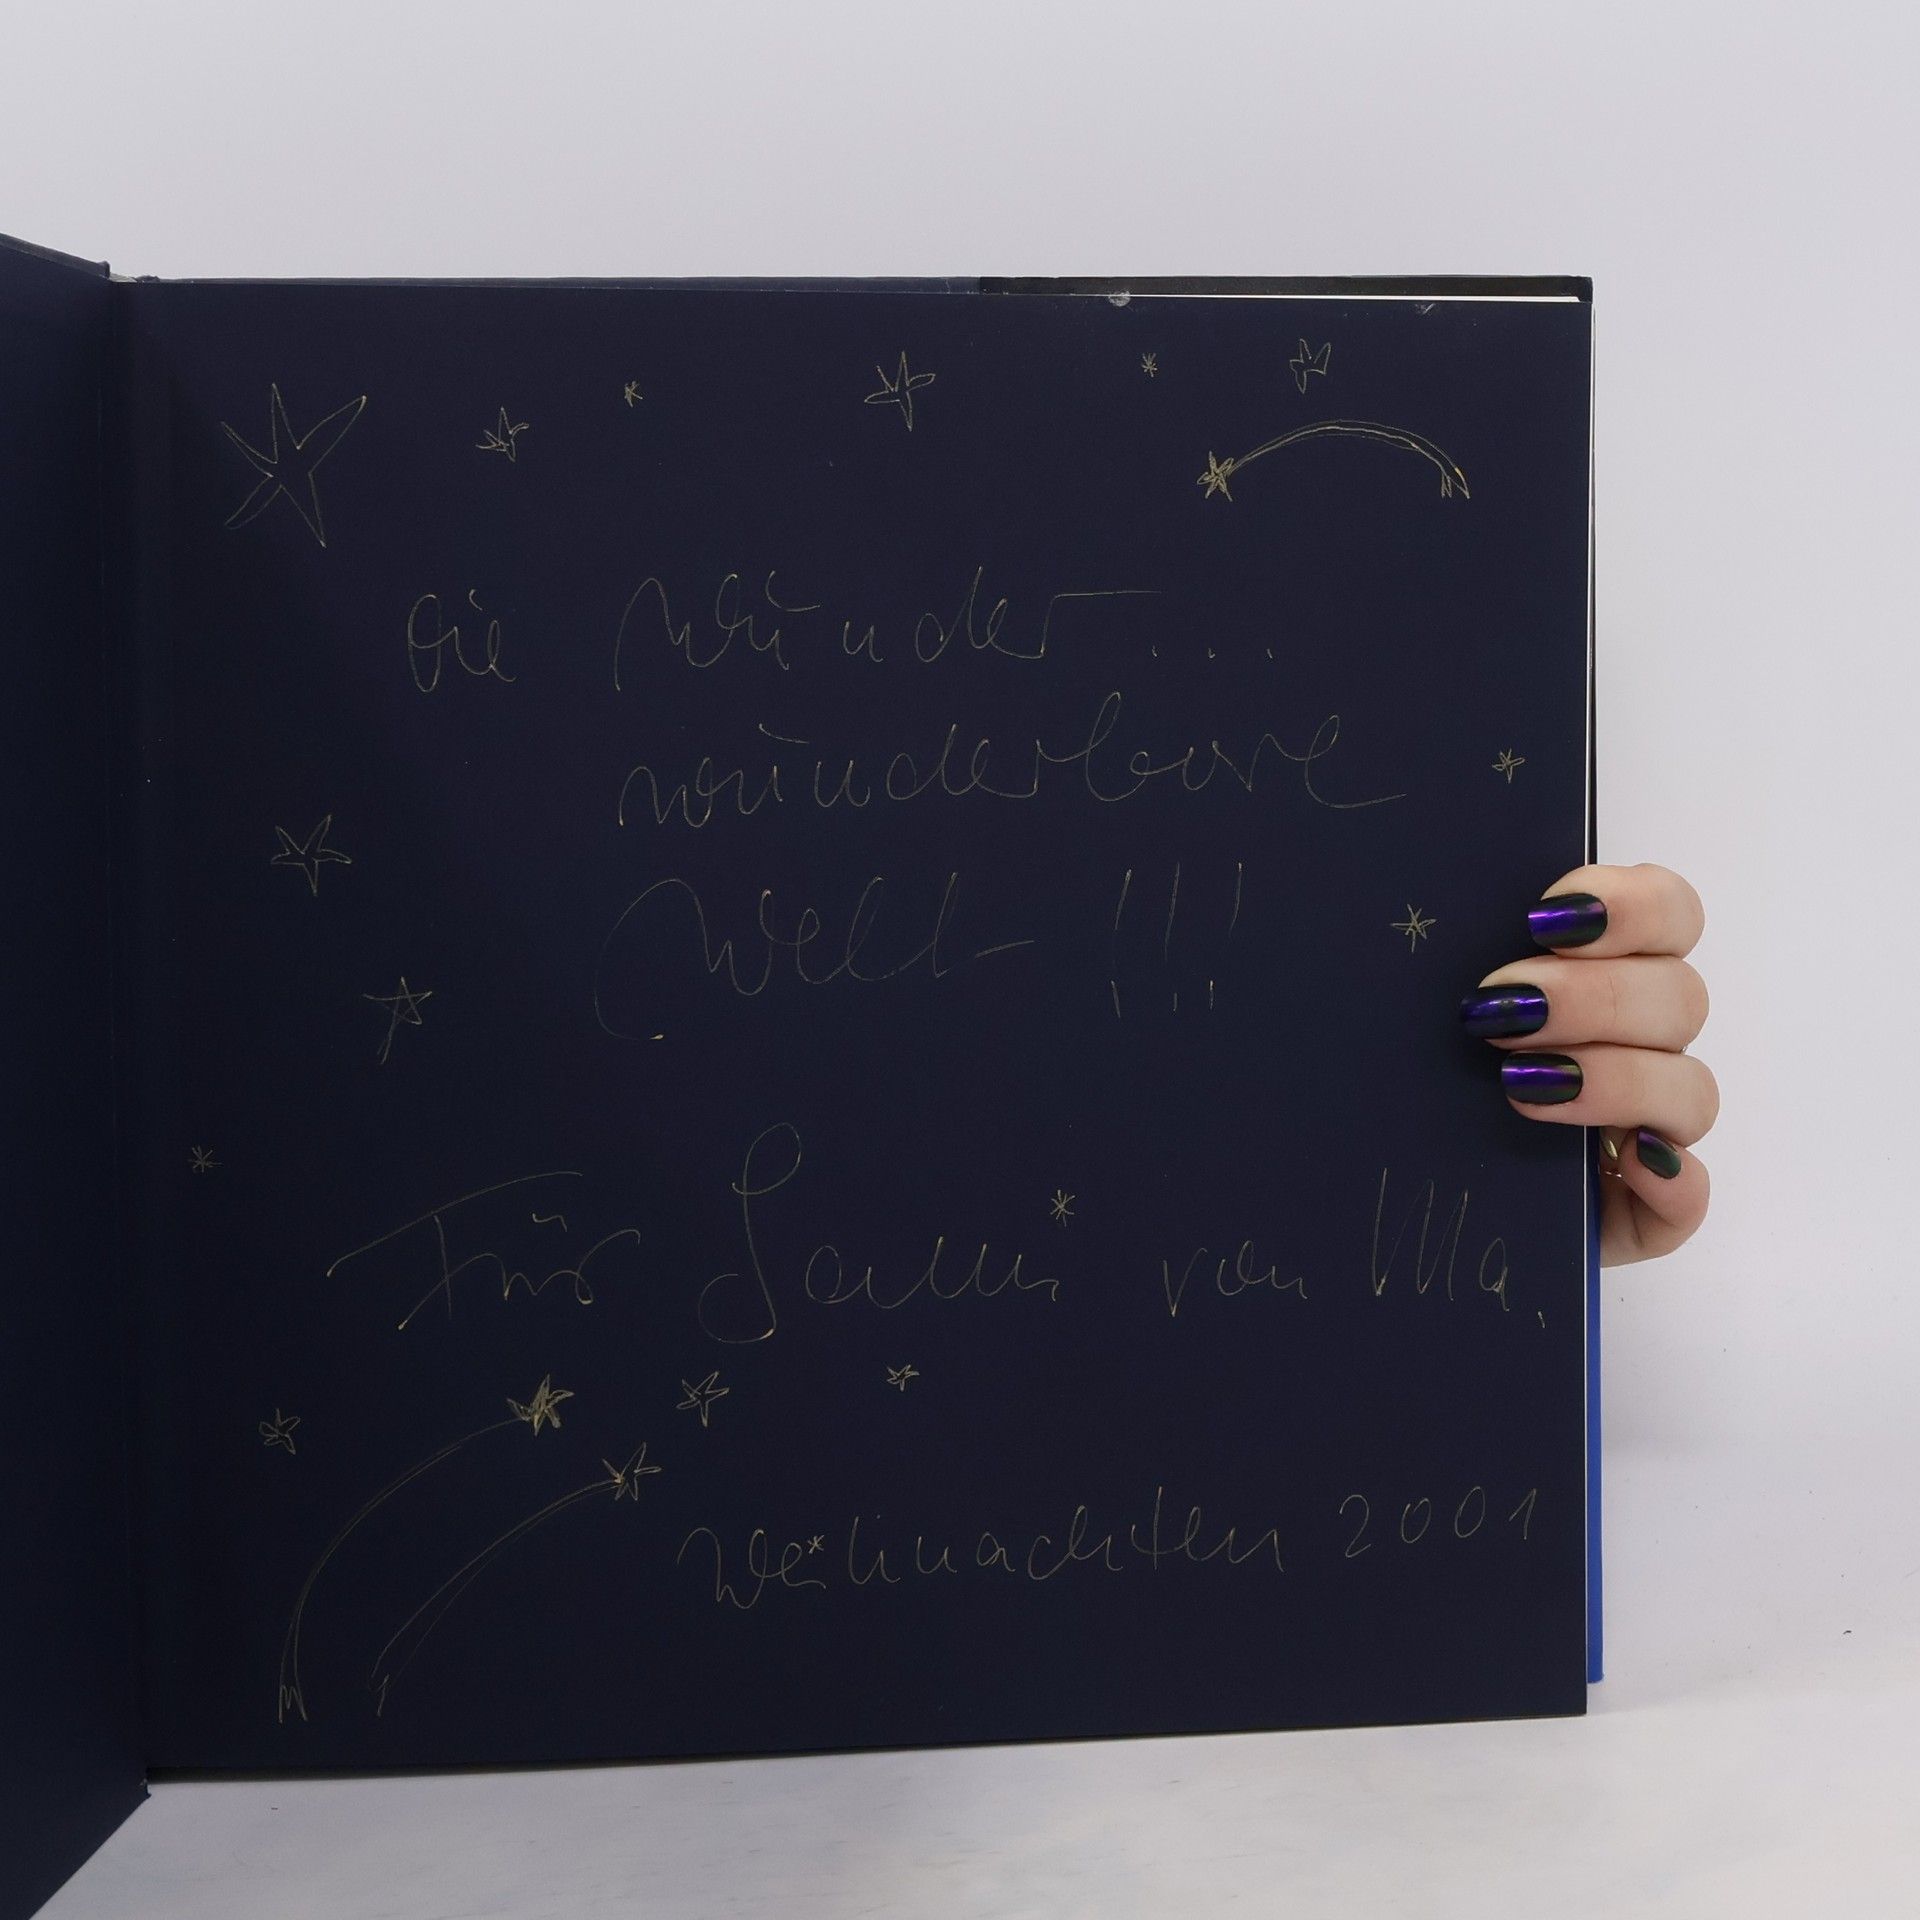 die Wunder...
wunderbare
Welt !!!
Für Sami von Ma.
Weihnachten 2001